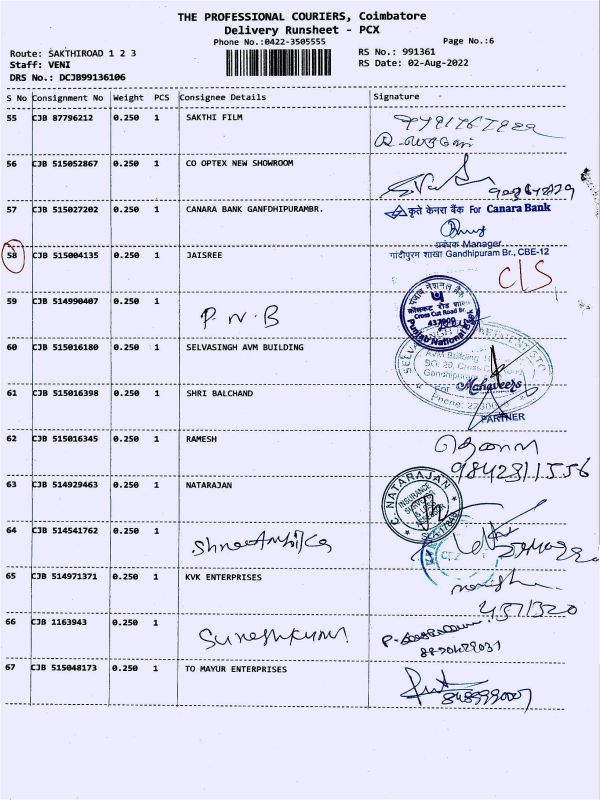 THE PROFESSIONAL COURIERS, Coimbatore
Delivery Runsheet - PCX
Phone No.:0422-3505555
Page No.:6
Route: SAKTHIROAD 1 2 3
RS No.: 991361
Staff: VENI
RS Date: 02-Aug-2022
DRS No.: DCJB99136106
S No Consignment No Weight PCS Consignee Details Signature
55 CJB 87796212 0.250 1 SAKTHI FILM
56 CJB 515052867 0.250 1 CO OPTEX NEW SHOWROOM
57 CJB 515027202 0.250 1 CANARA BANK GANFDHIPURAMBR.
कृते केनरा बैंक For Canara Bank
प्रबंधक Manager
गांदीपुरम शाखा Gandhipuram Br., CBE-12
58 CJB 515004135 0.250 1 JAISREE
C/S
59 CJB 514990407 0.250 1 P.N.B
पंजाब नेशनल बैंक
Cross Cut Road Br.
Punjab National Bank
60 CJB 515016180 0.250 1 SELVASINGH AVM BUILDING
AVM Building
For Mahaveers
PARTNER
61 CJB 515016398 0.250 1 SHRI BALCHAND
62 CJB 515016345 0.250 1 RAMESH
9842311556
63 CJB 514929463 0.250 1 NATARAJAN
C. NATARAJAN
INSURANCE
64 CJB 514541762 0.250 1 Shree Ambika
65 CJB 514971371 0.250 1 KVK ENTERPRISES
4371320
66 CJB 1163943 0.250 1 Sureshkumar
67 CJB 515048173 0.250 1 TO MAYUR ENTERPRISES